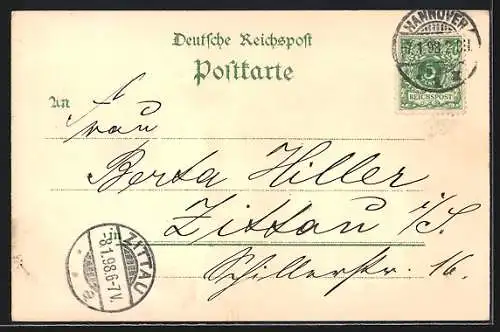 HANNOVER
7.1.98.
5
REICHSPOST
Deutsche Reichspost
Postkarte
An
Frau
Berta Hiller
in Zittau i/S.
Schillerstr. 16.
ZITTAU
8.1.98.6-7V.